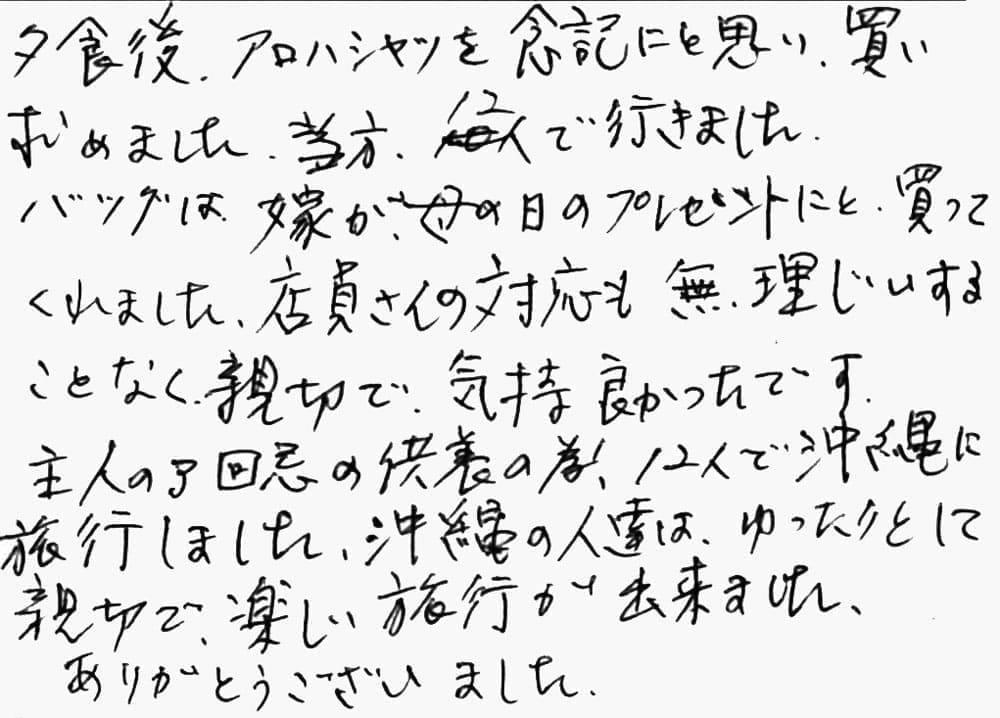 夕食後、アロハシャツを念記にと思い、買い
求めました、当方、12人で行きました、
バッグは、嫁が、母の日のプレゼントにと、買って
くれました、店員さんの対応も無理じいする
ことなく、親切で、気持良かったです、
主人の3回忌の供養の為、12人で沖縄に
旅行しました、沖縄の人達は、ゆったりとして
親切で、楽しい旅行が出来ました、
ありがとうございました、